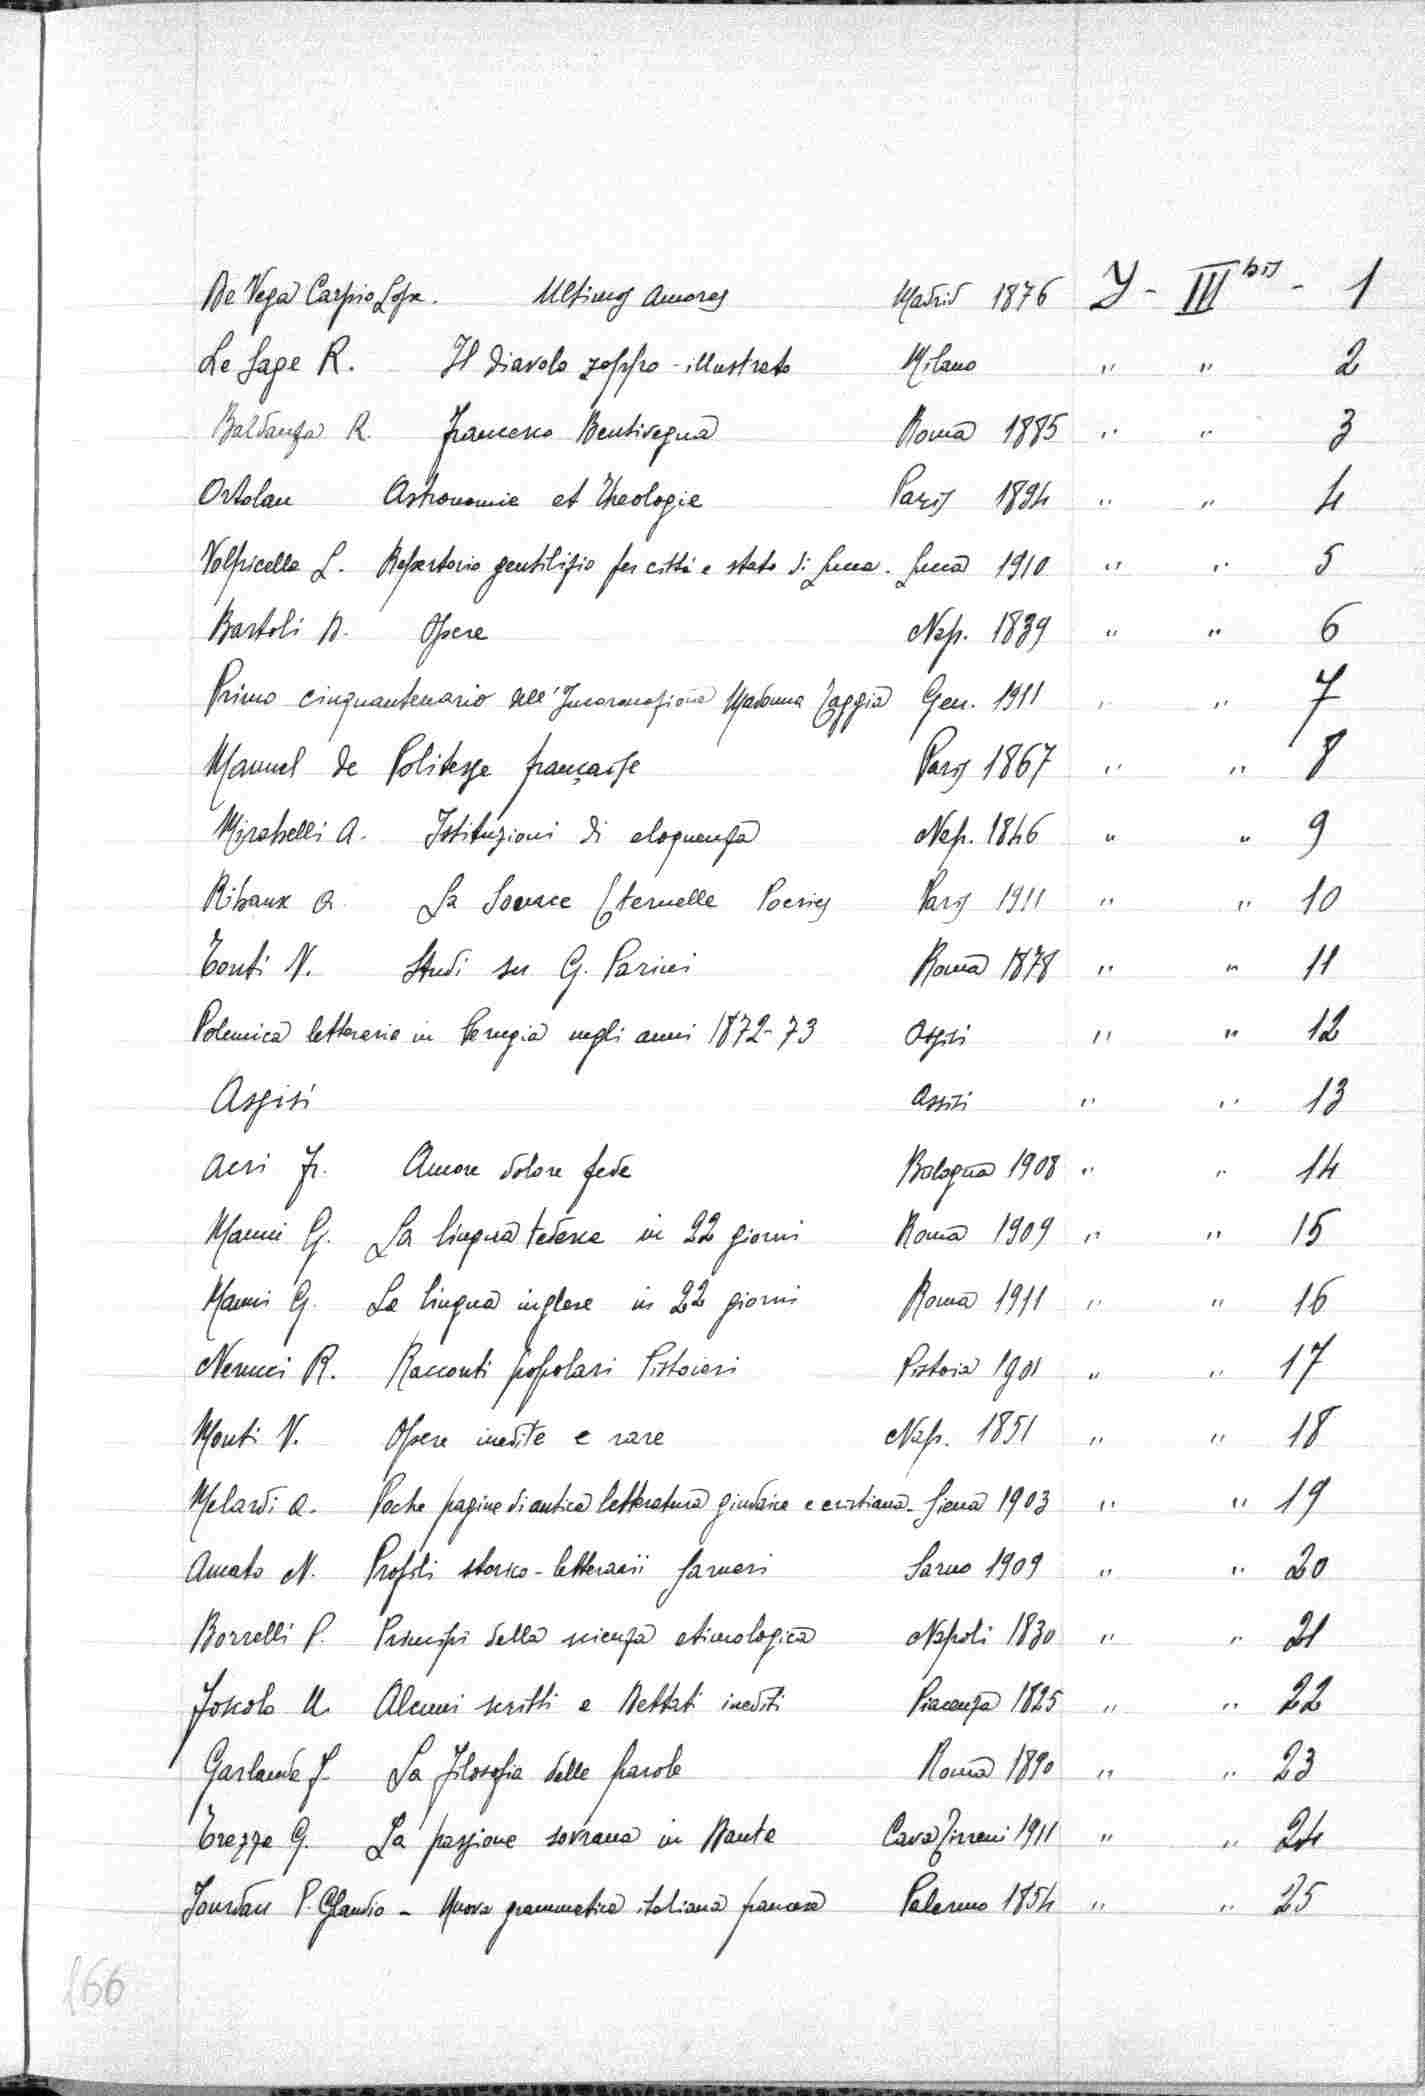 De Vega Carpio Lope. Ultimos amores Madrid 1876 Y - III bis - 1
Le Sage R. Il diavolo zoppo - illustrato Milano " " 2
Baldanza R. Francesco Bentivegna Roma 1885 " " 3
Ortolan Astronomie et Theologie Paris 1894 " " 4
Volpicella L. Repertorio gentilizio per città e stato di Lucca. Lucca 1910 " " 5
Bartoli D. Opere Nap. 1839 " " 6
Primo cinquantenario dell'Incoronazione Madonna Gen. 1911 " " 7
Manuel de Politesse française Paris 1867 " " 8
Mirabelli A. Istituzioni di eloquenza Nap. 1846 " " 9
Ribaux A. La Source Eternelle Poesies Paris 1911 " " 10
Tonti N. Studi su G. Parini Roma 1878 " " 11
Polemica letteraria in Perugia negli anni 1872-73 Assisi " " 12
Assisi Assisi " " 13
Acri Fr. Amore dolore fede Bologna 1908 " " 14
Manni G. La lingua tedesca in 22 giorni Roma 1909 " " 15
Manni G. La lingua inglese in 22 giorni Roma 1911 " " 16
Nerucci R. Racconti popolari Pistoiesi Pistoia 1901 " " 17
Monti V. Opere inedite e rare Nap. 1851 " " 18
Melardi A. Poche pagine di antica letteratura giudaica e cristiana - Siena 1903 " " 19
Amato N. Profili storico-letterarii Sarnesi Sarno 1909 " " 20
Borrelli P. Principi della scienza etimologica Napoli 1830 " " 21
Foscolo U. Alcuni scritti e Dettati inediti Piacenza 1825 " " 22
Garlanda F. La Filosofia delle parole Roma 1890 " " 23
Trezza G. La passione sovrana in Dante Cava Tirreni 1911 " " 24
Jourdan P. Claudio - Nuova grammatica italiana francese Palermo 1854 " " 25
166